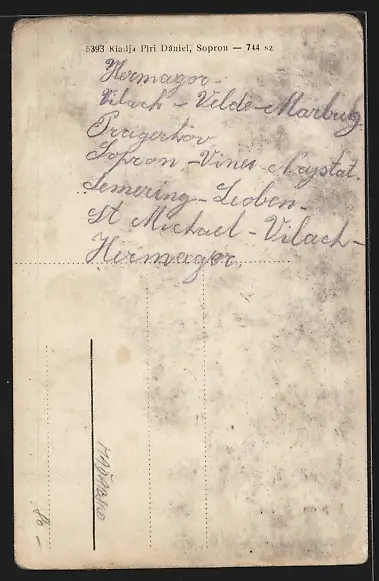 5393 Kiadja Piri Dániel, Sopron — 744 sz
Hermagor -
Vilach - Velde - Marburg
Pragerhov
Sopron - Viner Najstat.
Semering - Leoben -
St Michael - Vilach -
Hermagor